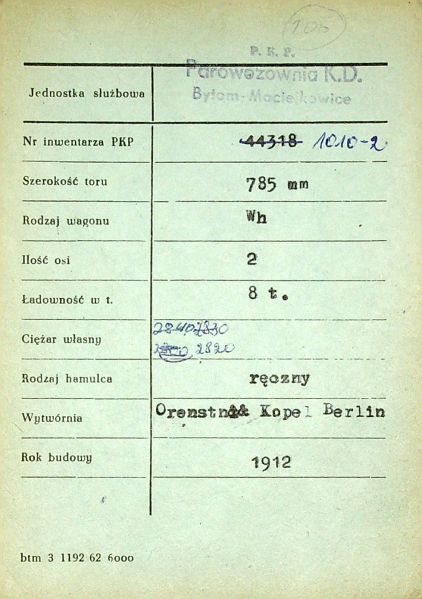 105
P. K. P.
Parowozownia K.D.
Bytom-Maciejkowice
Jednostka służbowa
Nr inwentarza PKP 44318 1010-2
Szerokość toru 785 mm
Rodzaj wagonu Wh
Ilość osi 2
Ładowność w t. 8 t.
2840 2830
Ciężar własny 2820
Rodzaj hamulca ręczny
Wytwórnia Kopel Berlin
Rok budowy 1912
btm 3 1192 62 6000